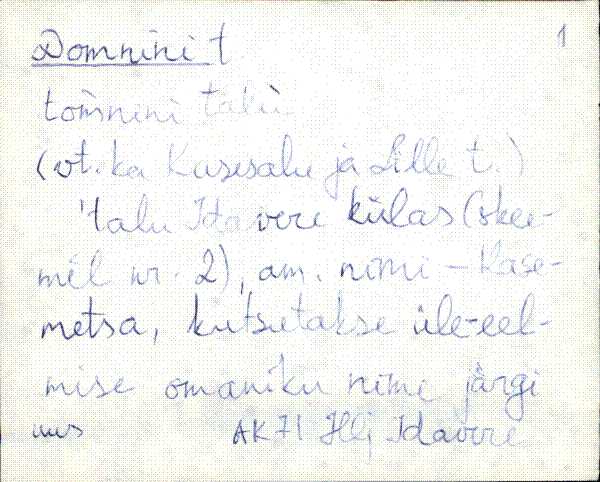 Domnini t 1
tom̀nini talu
(vt. ka Kasesalu ja Lille t.)
'talu Idavere külas (skee-
mil nr. 2), am. nimi – Kase-
metsa, kutsutakse üle-eel-
mise omaniku nime järgi
uus AK71 Hlj Idavere